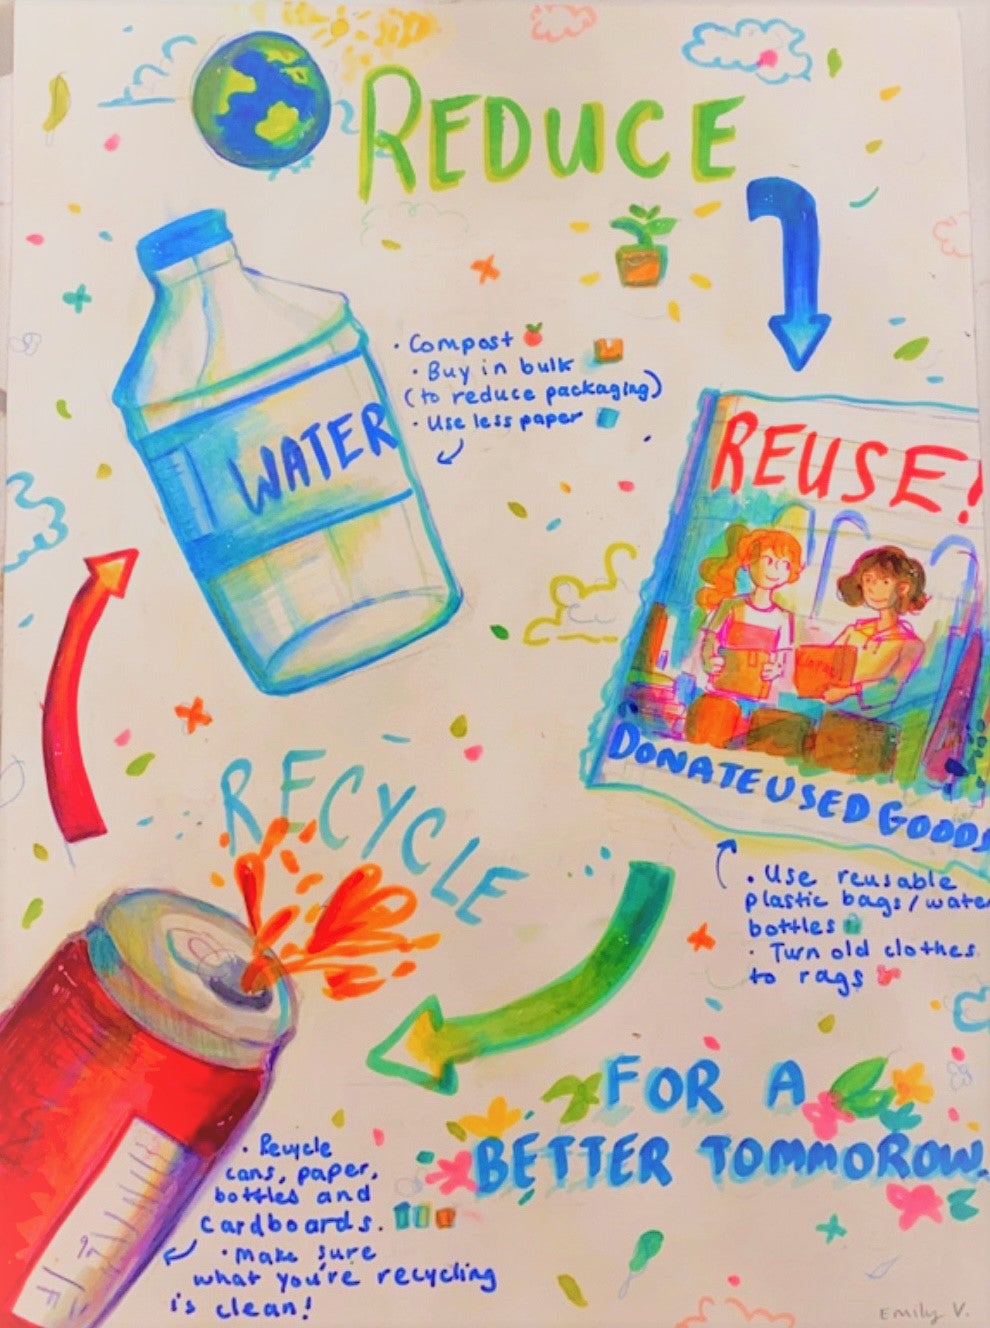 REDUCE
• Compost
• Buy in bulk
(to reduce packaging)
• Use less paper
WATER
REUSE!
DONATE USED GOODS
• Use reusable
plastic bags/wate
bottles
• Turn old clothes
to rags
RECYCLE
• Recycle
cans, paper,
bottles and
cardboards.
• Make sure
what you're recycling
is clean!
FOR A
BETTER TOMMOROW.
Emily V.